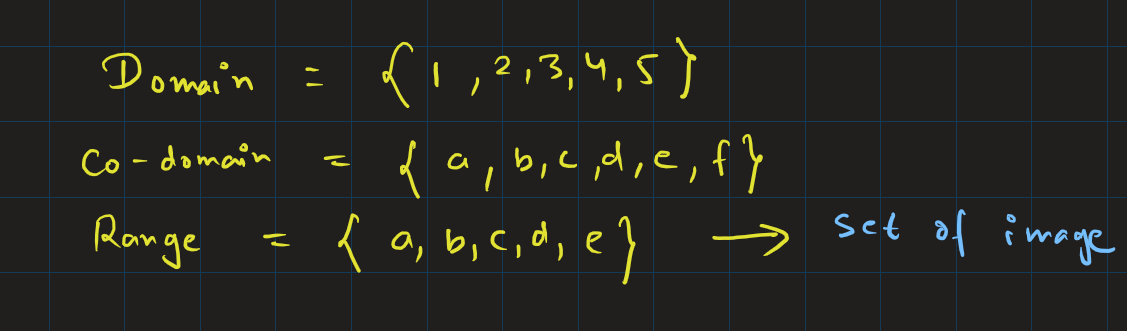 Domain = {1, 2, 3, 4, 5}
Co-domain = {a, b, c, d, e, f}
Range = {a, b, c, d, e} → set of image